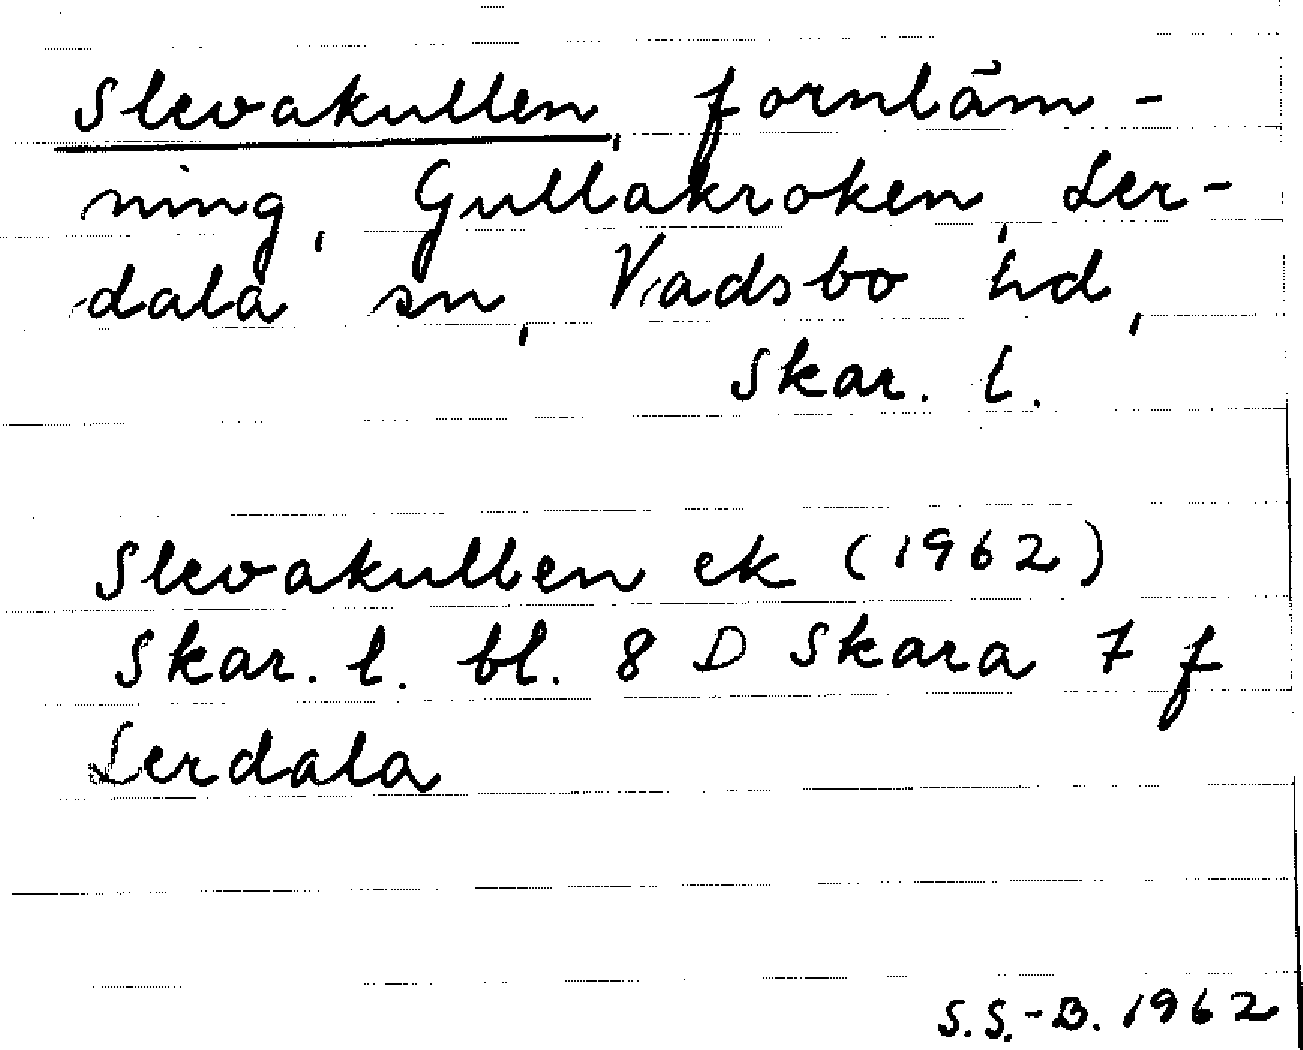 Slevakullen, fornläm-
ning, Gullakroken, Ler-
dala sn, Vadsbo hd,
Skar. l.
Slevakullen ek (1962)
Skar. l. bl. 8 D Skara 7 f
Lerdala
S.S.-B. 1962